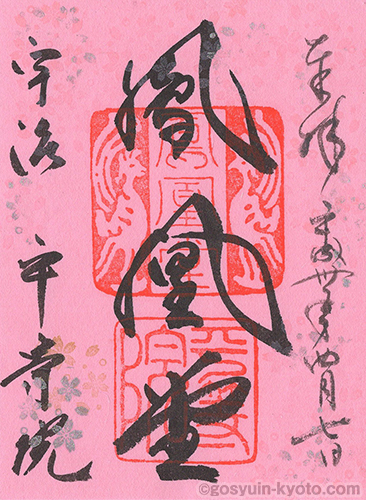 奉拝 平成卅年四月七日
鳳凰堂
宇治 平等院
鳳凰堂
©gosyuin-kyoto.com